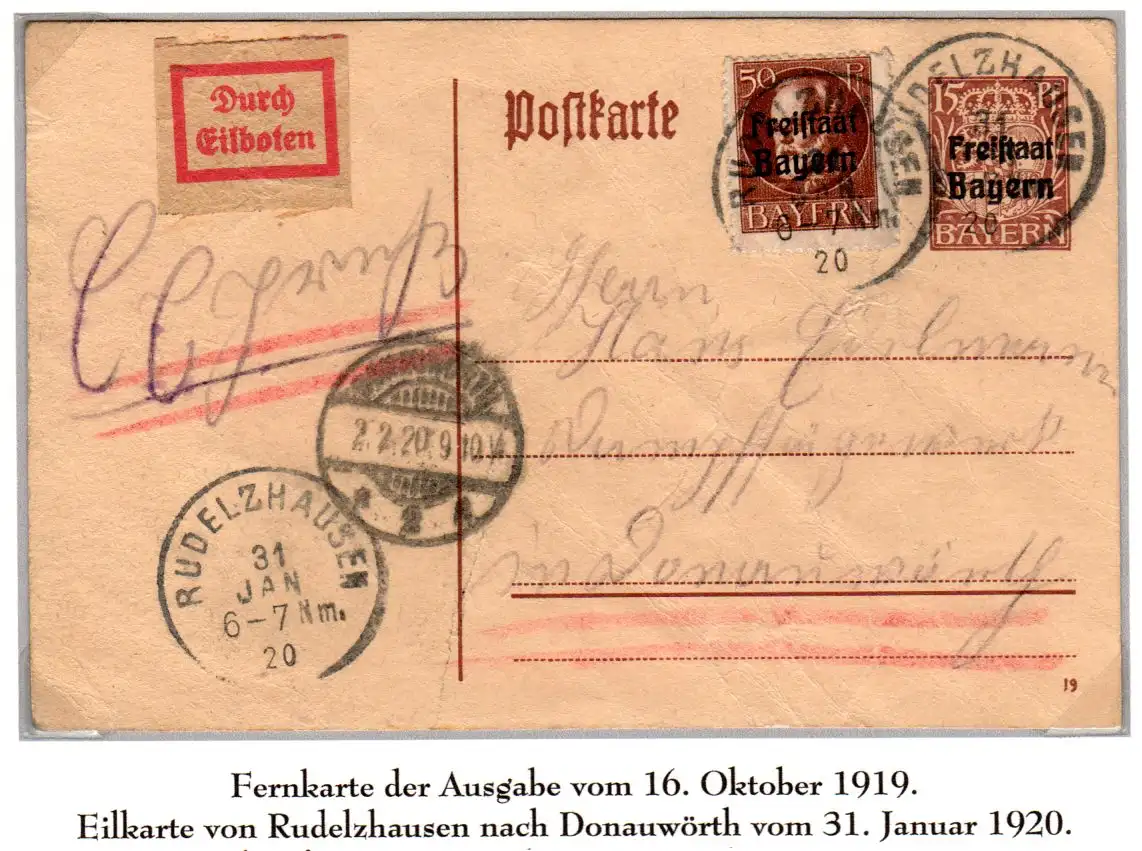 Durch
Eilboten
Postkarte
50 P
Freistaat
Bayern
BAYERN
RUDELZHAUSEN
6-7 Nm.
20
15 P
Freistaat
Bayern
BAYERN
RUDELZHAUSEN
31
20
Herrn
Hans
in Donauwörth
2.2.20. 9-10 V
2
RUDELZHAUSEN
31
JAN
6-7 Nm.
20
19
Fernkarte der Ausgabe vom 16. Oktober 1919.
Eilkarte von Rudelzhausen nach Donauwörth vom 31. Januar 1920.